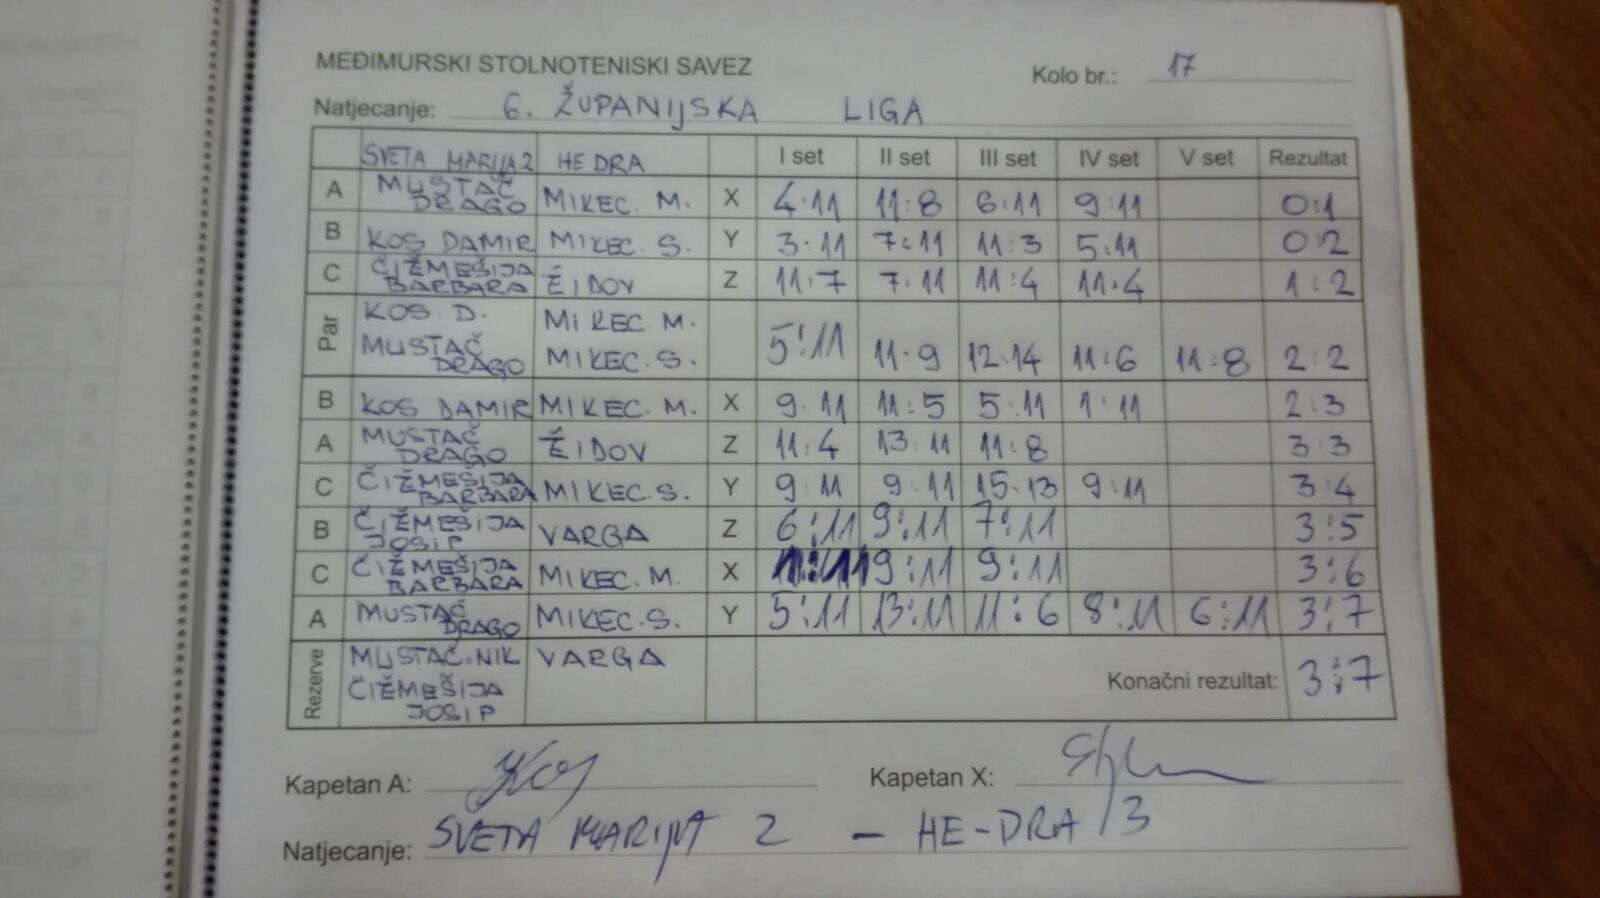 MEĐIMURSKI STOLNOTENISKI SAVEZ
Kolo br.: 17
Natjecanje: 6. ŽUPANIJSKA LIGA
SVETA MARIJA 2 HEDRA I set II set III set IV set V set Rezultat
A MUSTAČ DRAGO MIKEC. M. X 4:11 11:8 6:11 9:11 0:1
B KOS DAMIR MIKEC. S. Y 3:11 7:11 11:3 5:11 0:2
C ČIŽMEŠIJA BARBARA ŽIDOV Z 11:7 7:11 11:4 11:4 1:2
Par KOS. D. MIKEC. M.
MUSTAČ DRAGO MIKEC. S. 5:11 11:9 12:14 11:6 11:8 2:2
B KOS DAMIR MIKEC. M. X 9:11 11:5 5:11 1:11 2:3
A MUSTAČ DRAGO ŽIDOV Z 11:4 13:11 11:8 3:3
C ČIŽMEŠIJA BARBARA MIKEC.S. Y 9:11 9:11 15:13 9:11 3:4
B ČIŽMEŠIJA JOSIP VARGA Z 6:11 9:11 7:11 3:5
C ČIŽMEŠIJA BARBARA MIKEC. M. X 9:11 9:11 3:6
A MUSTAČ DRAGO MIKEC.S. Y 5:11 13:11 11:6 8:11 6:11 3:7
Rezerve MUSTAČ.NIK VARGA
ČIŽMEŠIJA JOSIP
Konačni rezultat: 3:7
Kapetan A: Kapetan X:
Natjecanje: SVETA MARIJA 2 - HE-DRA 3